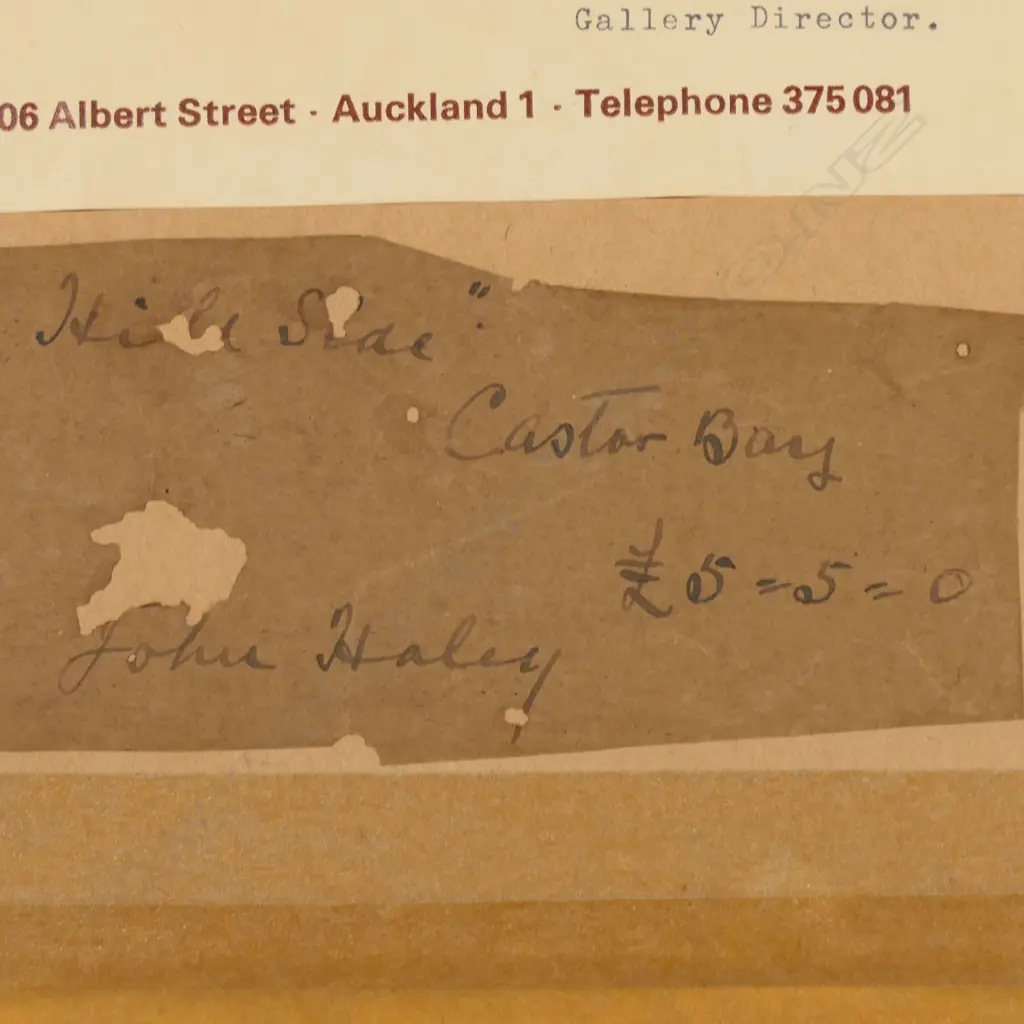 Gallery Director.
06 Albert Street · Auckland 1 · Telephone 375 081
Hill Side"
Castor Bay
£5=5=0
John Haley